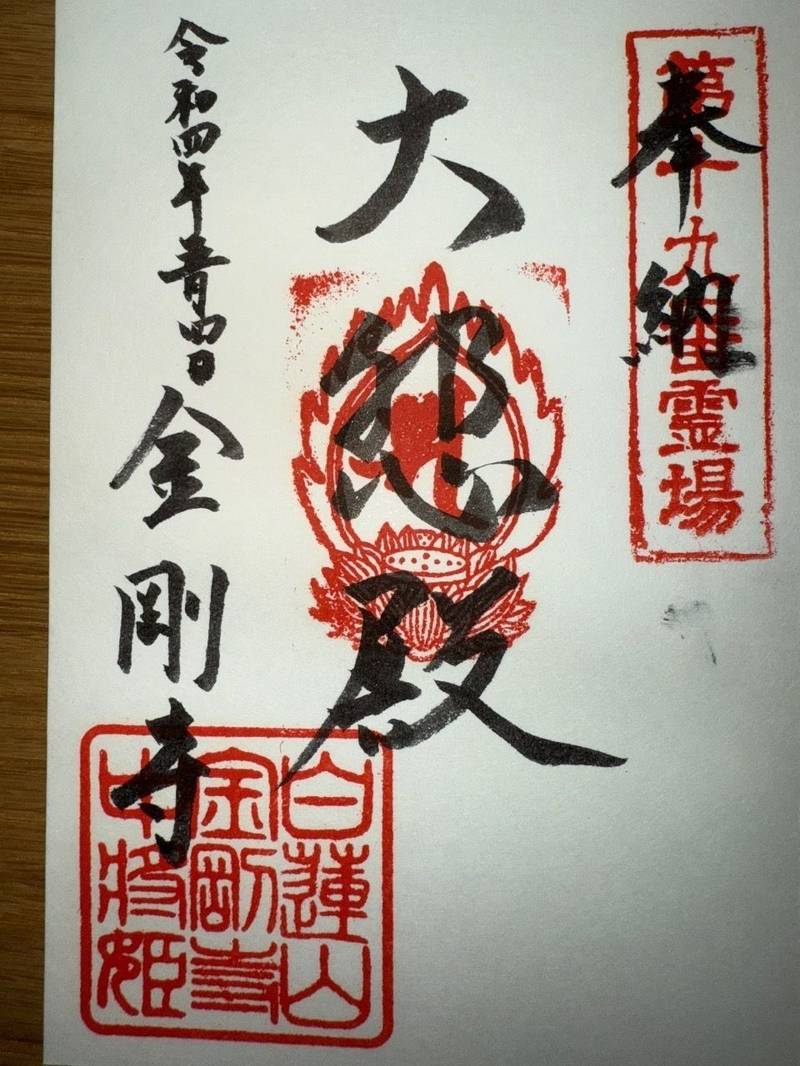 奉納
第十九番霊場
大悲殿
令和四年
金剛寺
白蓮山
金剛寺
中将姫